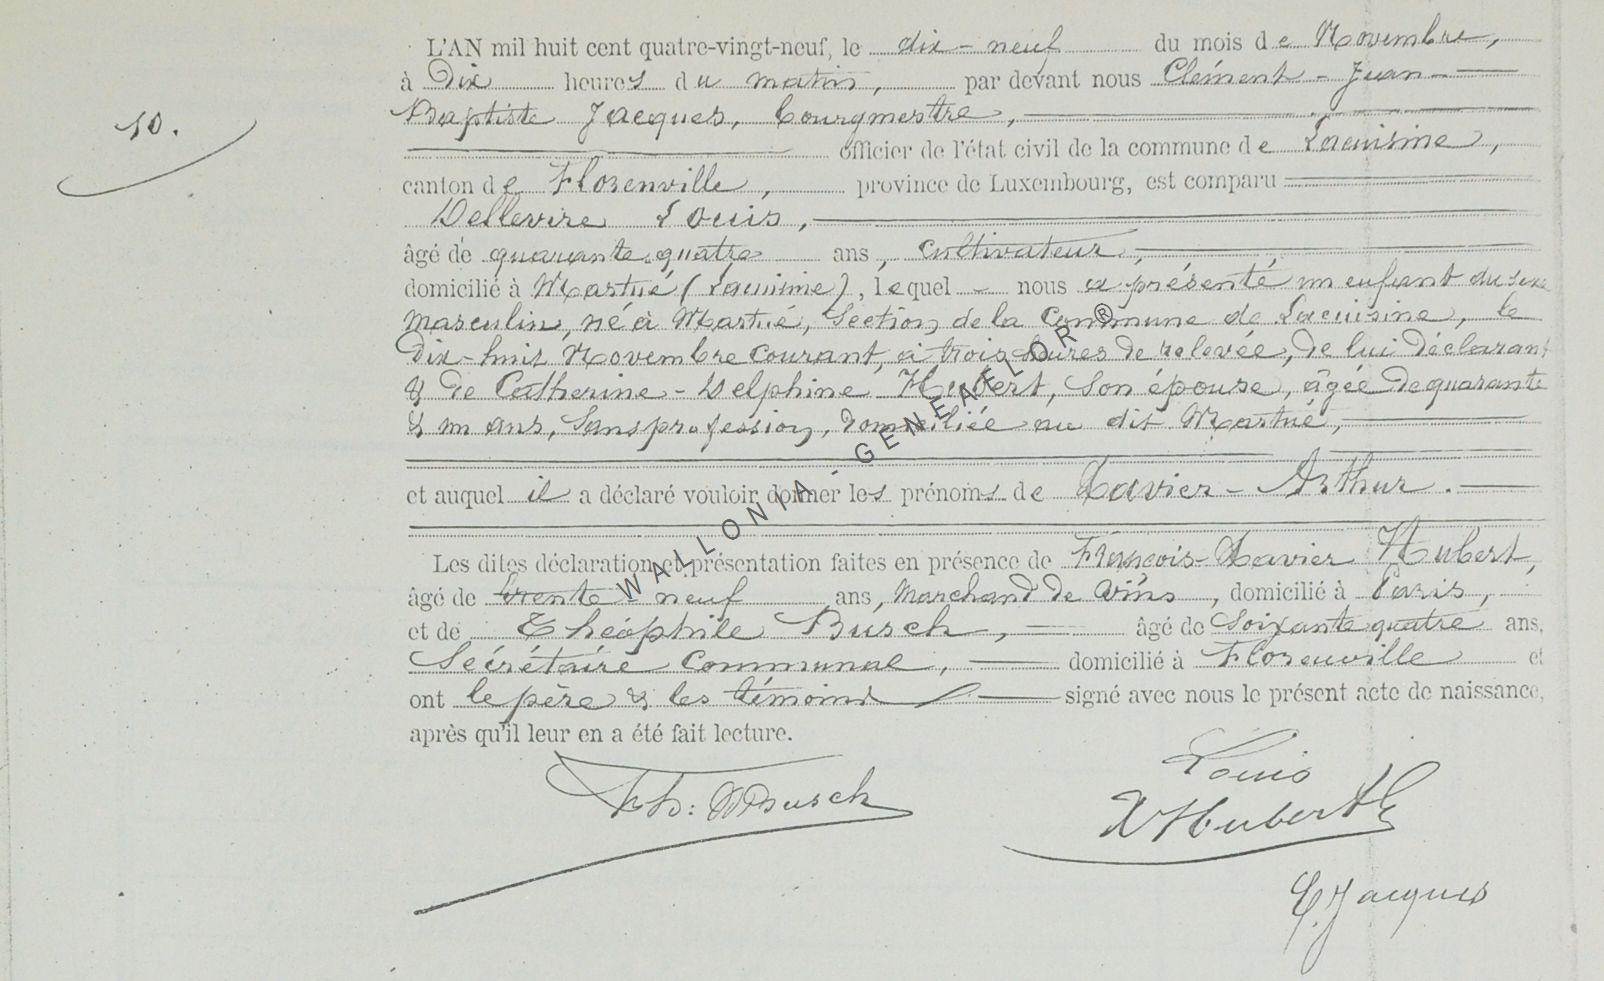 L'AN mil huit cent quatre-vingt-neuf, le dix-neuf du mois de Novembre,
à Dix heures du matin, par devant nous Clément-Jean-
Baptiste Jacques, Bourgmestre,
10.
officier de l'état civil de la commune de Lacuisine,
canton de Florenville, province de Luxembourg, est comparu
Dellevire Louis,
âgé de quarante quatre ans, cultivateur,
domicilié à Martué (Lacuisine), lequel nous a présenté un enfant du sexe
masculin, né à Martué, Section de la Commune de Lacuisine, le
Dix-huit Novembre courant, à trois heures de relevée, de lui déclarant
& de Catherine-Delphine Hubert, son épouse, âgée de quarante
& un ans, sans profession, domiciliée au dit Martué,
et auquel il a déclaré vouloir donner les prénoms de Xavier-Arthur.
Les dites déclaration et présentation faites en présence de François-Xavier Hubert,
âgé de trente-neuf ans, marchand de vins, domicilié à Paris,
et de Théophile Busch, âgé de soixante quatre ans,
Sécrétaire Communal, domicilié à Florenville et
ont le père & les témoins signé avec nous le présent acte de naissance,
après qu'il leur en a été fait lecture.
Louis
Th: Busch
X Hubert
C. Jacques
WALLONIA - GENEAFLOR ®